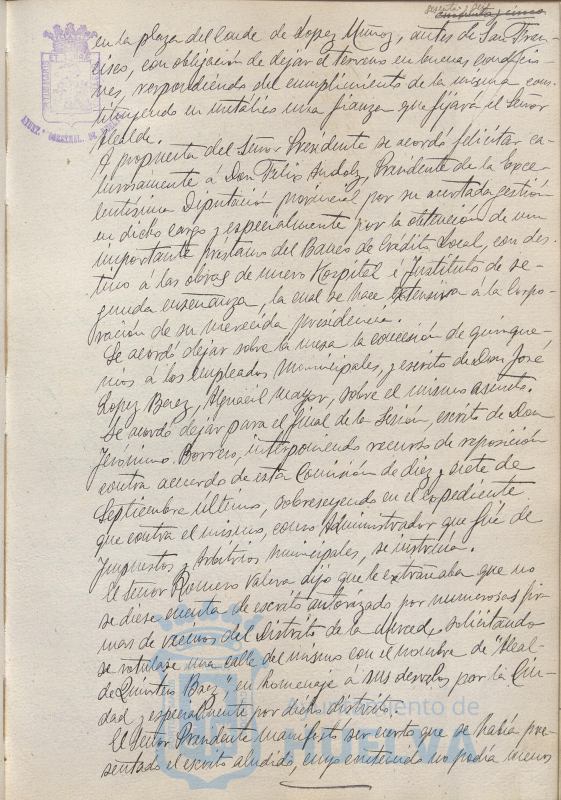 sesenta y seis
cincuenta y cinco
en la plaza del Conde de Lopez Muñoz, antes de San Fran-
cisco, con obligación de dejar el terreno en buenas condicio-
nes, respondiendo del cumplimiento de la misma cons-
tituyendo en metálico una fianza que fijará el Señor
Alcalde.
A propuesta del Señor Presidente se acordó felicitar ca-
lurosamente á Don Felix Andolz, Presidente de la Exce-
lentísima Diputación provincial por su acertada gestión
en dicho cargo y especialmente por la obtención de un
importante prestamo del Banco de Crédito Local, con des-
tino á las obras de nuevo Hospital é Instituto de se-
gunda enseñanza, la cual se hace extensiva á la Corpo-
ración de su merecida presidencia.
Se acordó dejar sobre la mesa la concesión de quinque-
nios á los empleados municipales, y escrito de Don José
Lopez Perez, Alguacil mayor, sobre el mismo asunto.
Se acordó dejar para el final de la Sesión, escrito de Don
Jerónimo Borrero, interponiendo recurso de reposición
contra acuerdo de esta Comisión de diez y siete de
Septiembre último, sobreseyendo en el expediente
que contra el mismo, como Administrador que fué de
Impuestos y Arbitrios municipales, se instruía.
El Señor Romero Valera dijo que le extrañaba que no
se diese cuenta de escrito autorizado por numerosas fir-
mas de vecinos del Distrito de la Merced, solicitando
se rotulase una calle del mismo con el nombre de "Alcal-
de Quintero Baez", en homenaje á sus desvelos por la Ciu-
dad y especialmente por dicho distrito.
El Señor Presidente manifestó ser cierto que se había pre-
sentado el escrito aludido, cuyo contenido no podía menos
Ayuntamiento de
HUELVA